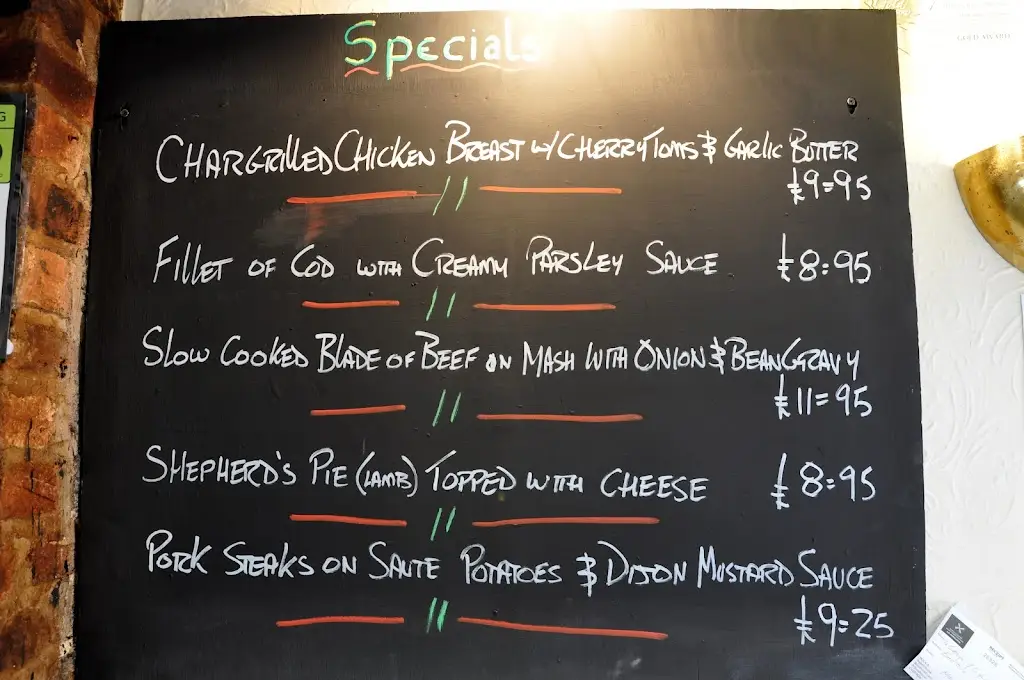 Specials
CHARGRILLED CHICKEN BREAST W/ CHERRY TOMS & GARLIC BUTTER
£9=95
FILLET OF COD WITH CREAMY PARSLEY SAUCE £8=95
SLOW COOKED BLADE OF BEEF ON MASH WITH ONION & BEAN GRAVY
£11=95
SHEPHERD'S PIE (LAMB) TOPPED WITH CHEESE £8=95
PORK STEAKS ON SAUTE POTATOES & DIJON MUSTARD SAUCE
£9=25
GOLD AWARD
G